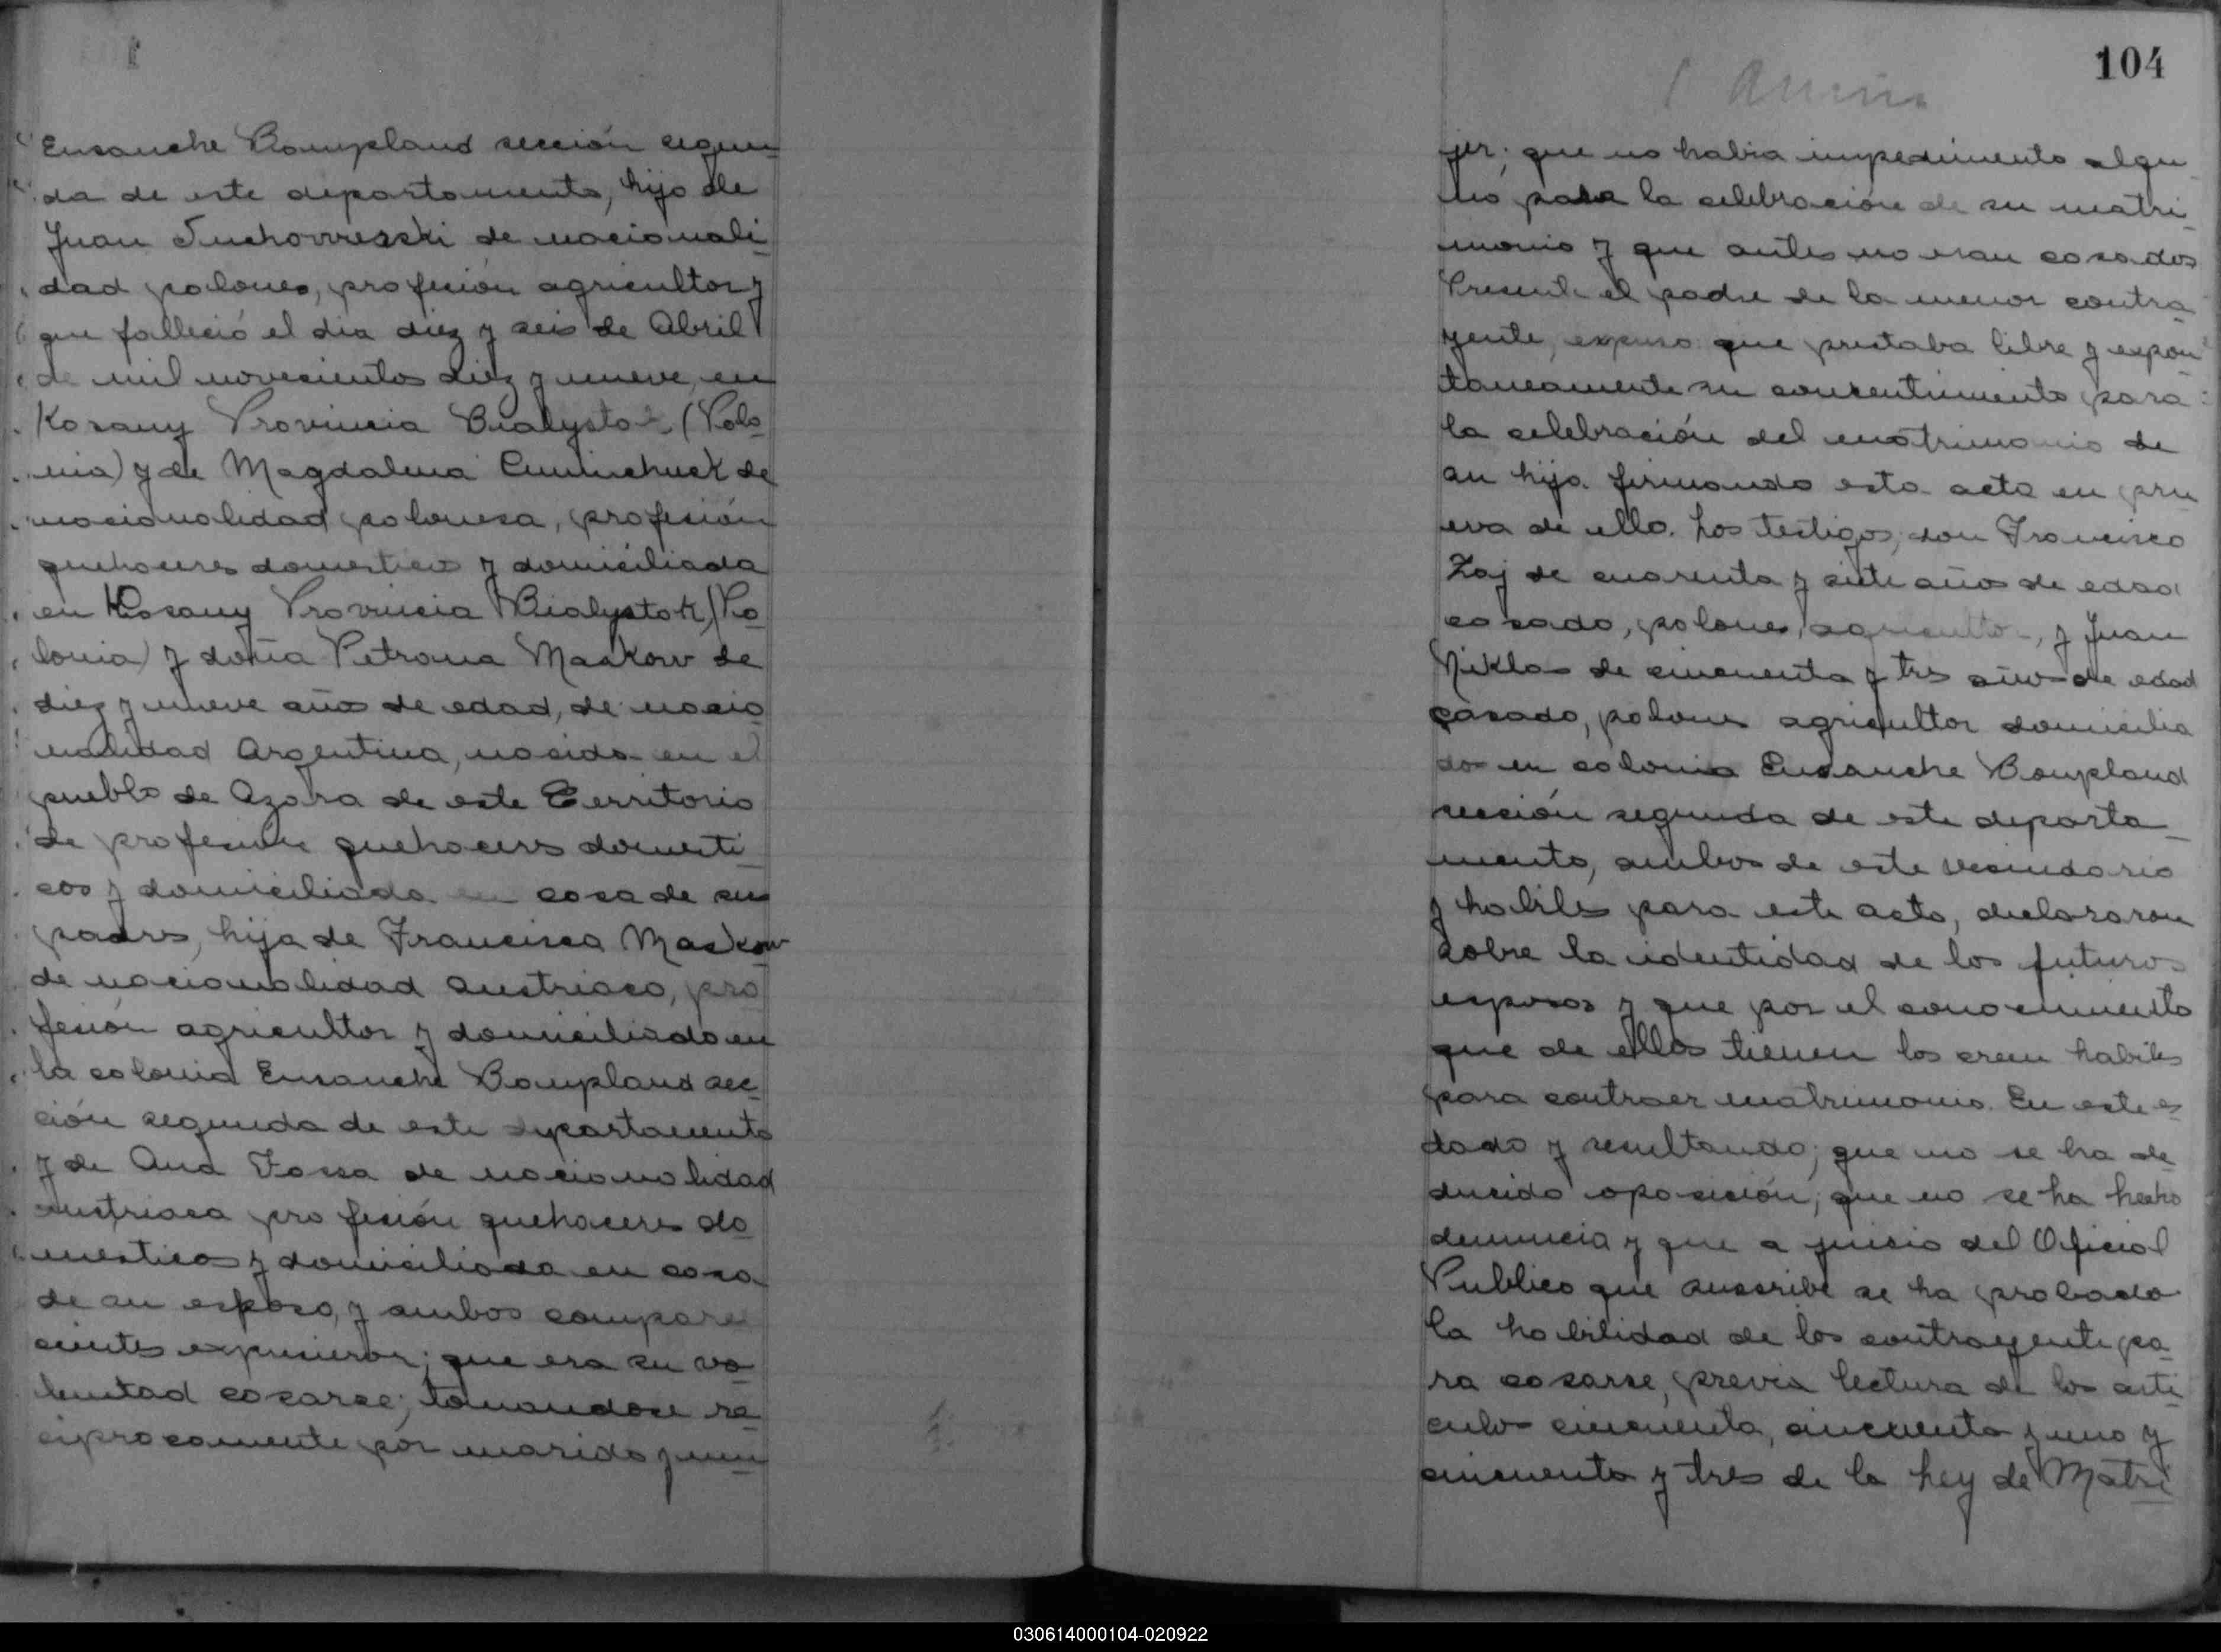 Ensanche Bompland sección segun-
da de este departamento, hijo de
Juan Suchowreski de nacionali-
dad polones, profesión agricultor y
que falleció el dia diez y seis de Abril
de mil novecientos diez y nueve, en
Kosany Provincia Bialystok (Polo-
nia) y de Magdalena de
nacionalidad polonesa, profesión
quehaceres domesticos y domiciliada
en Kosany Provincia Bialystok (Po-
lonia) y doña Petrona Maskow de
diez y nueve años de edad, de nacio-
nalidad Argentina, nacida en el
pueblo de Azara de este Territorio
de profesion quehaceres domesti-
cos y domiciliada en casa de sus
padres, hija de Francisco Maskow
de nacionalidad austriaco, pro
fesión agricultor y domiciliado en
la colonia Ensanche Bompland sec-
ción segunda de este departamento
y de Ana Fossa de nacionalidad
austriaca profesión quehaceres do-
mesticos y domiciliada en casa
de su esposo, y ambos compare
cientes expusieron; que era su vo-
luntad casarse; tomandose re-
ciprocamente por marido y mu-
104
jer; que no habia impedimento algu-
no para la celebración de su matri-
monio y que antes no eran casados
Presente el padre de la menor contra-
yente, expuso que prestaba libre y espon-
taneamente su consentimiento para
la celebración del matrimonio de
su hija firmando esta acta en pru
eva de ello. Los testigos, don Francisco
Zaj de cuarenta y siete años de edad
casado, polones, agricultor, y Juan
Niklas de cincuenta y tres años de edad
casado, polones agricultor domicilia
dos en colonia Ensanche Bompland
sección segunda de este departa-
mento, ambos de este vecindario
y habiles para este acto, declararon
sobre la identidad de los futuros
esposos y que por el conocimiento
que de ellos tienen los creen habiles
para contraer matrimonio. En este es
tado y resultando; que no se ha de-
ducido oposición; que no se ha hecho
denuncia y que a juicio del Oficial
Publico que suscribe se ha probado
la habilidad de los contrayente pa-
ra casarse, previa lectura de los arti-
culos cincuenta, cincuenta y uno y
cincuenta y tres de la Ley de Matri-
030614000104-020922